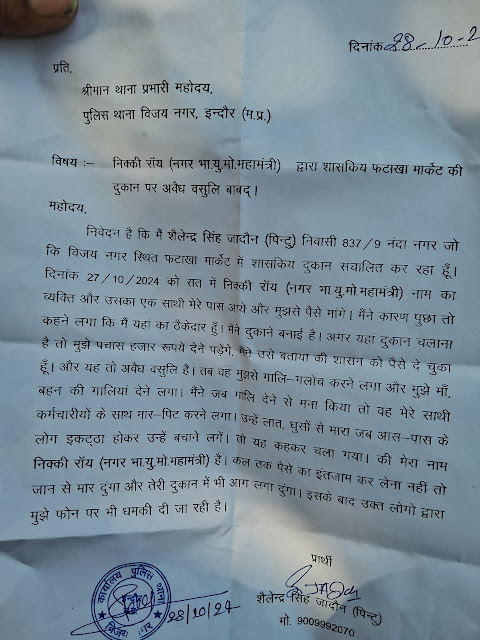 दिनांक 28-10-2
प्रति,
श्रीमान थाना प्रभारी महोदय,
पुलिस थाना विजय नगर, इन्दौर (म.प्र.)
विषय :– निक्की रॉय (नगर भा.यु.मो.महामंत्री) द्वारा शासकिय फटाखा मार्केट की
दुकान पर अवैध वसुलि बाबद्।
महोदय,
निवेदन है कि मैं शैलेन्द्र सिंह जादौन (पिन्टु) निवासी 837/9 नंदा नगर जो
कि विजय नगर स्थित फटाखा मार्केट में शासकिय दुकान संचालित कर रहा हूँ।
दिनांक 27/10/2024 को रात में निक्की रॉय (नगर भा.यु.मो.महामंत्री) नाम का
व्यक्ति और उसका एक साथी मेरे पास आये और मुझसे पैसे मांगे। मैंने कारण पुछा तो
कहने लगा कि मैं यहां का ठेकेदार हुँ। मैंने दुकाने बनाई है। अगर यहां दुकान चलाना
है तो मुझे पचास हजार रूपये देने पड़ेगें, मैंने उसे बताया की शासन को पैसे दे चुका
हूँ। और यह तो अवैध वसुलि है। तब वह मुझसे गालि–गलोच करने लगा और मुझे माँ,
बहन की गालियां देने लगा। मैंने जब गालि देने से मना किया तो वह मेरे साथी
कर्मचारीयों के साथ मार–पिट करने लगा। उन्हें लात, घुसों से मारा जब आस–पास के
लोग इकट्ठा होकर उन्हें बचाने लगें। तो यह कहकर चला गया। की मेरा नाम
निक्की रॉय (नगर भा.यु.मो.महामंत्री) है। कल तक पैसे का इंतजाम कर लेना नहीं तो
जान से मार दुंगा और तेरी दुकान में भी आग लगा दुंगा। इसके बाद उक्त लोगो द्वारा
मुझे फोन पर भी धमकी दी जा रही है।
प्रार्थी
शैलेन्द्र सिंह जादौन (पिन्टु)
मो. 9009992070
कार्यालय पुलिस थाना
विजय नगर
28/10/24